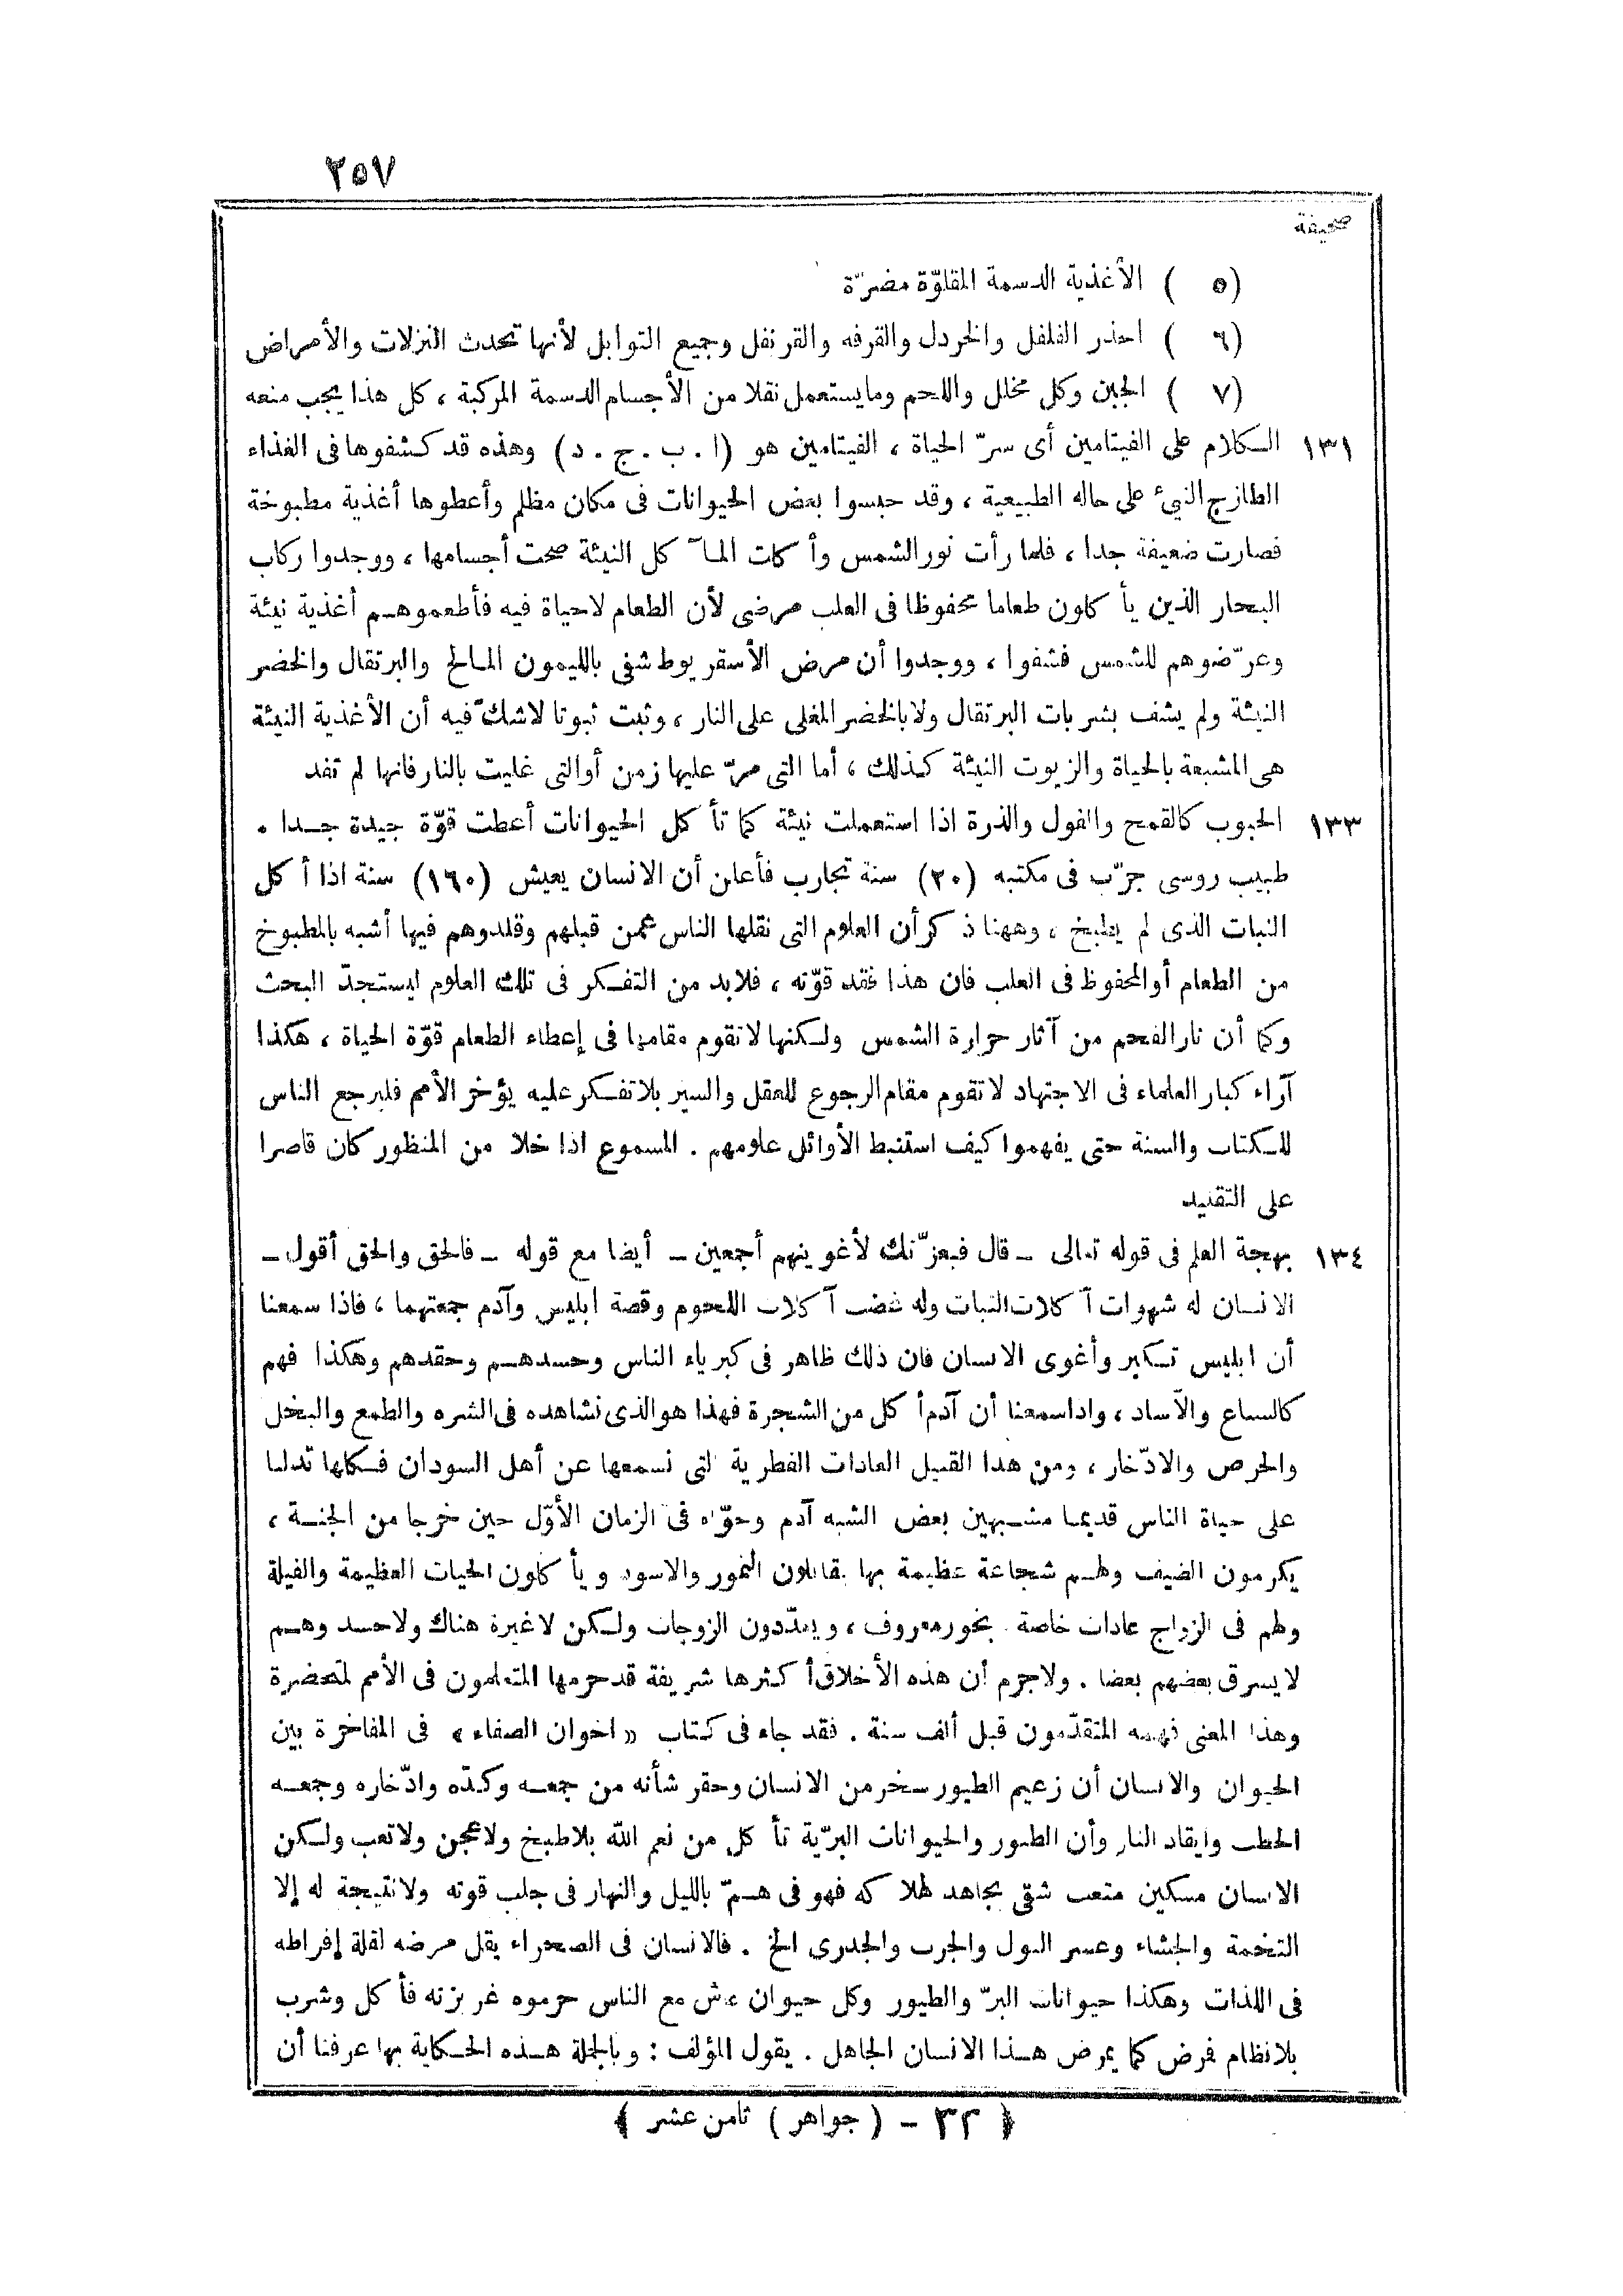 ٢٥٧
صحيفة
(٥) الأغذية الدسمة المقلوّة مضرّة
(٦) احذر الفلفل والخردل والقرفه والقرنفل وجميع التوابل لأنها تحدث النزلات والأمراض
(٧) الجبن وكل مخلل واللحم ومايستعمل نقلا من الأجسام الدسمة المركبة ، كل هذا يجب منعه
١٣١ الكلام على الفيتامين أى سرّ الحياة ، الفيتامين هو (ا . ب . ج . د) وهذه قد كشفوها فى الغذاء
الطازج النيء على حاله الطبيعية ، وقد حبسوا بعض الحيوانات فى مكان مظلم وأعطوها أغذية مطبوخة
فصارت ضعيفة جدا ، فلما رأت نور الشمس وأكلت المآكل النيئة صحت أجسامها ، ووجدوا ركاب
البحار الذين يأكلون طعاما محفوظا فى العلب مرضى لأن الطعام لاحياة فيه فأطعموهم أغذية نيئة
وعرّضوهم للشمس فشفوا ، ووجدوا أن مرض الأسقربوط شفى بالليمون المالح والبرتقال والخضر
النيئة ولم يشف بشربات البرتقال ولا بالخضر المغلى على النار ، وثبت ثبوتا لاشكّ فيه أن الأغذية النيئة
هى المشبعة بالحياة والزيوت النيئة كذلك ، أما التى مرّ عليها زمن أوالتى غليت بالنار فانها لم تفد
١٣٣ الحبوب كالقمح والفول والذرة اذا استعملت نيئة كما تأكل الحيوانات أعطت قوّة جيدة جدا .
طبيب روسى جرّب فى مكتبه (٢٠) سنة تجارب فأعلن أن الانسان يعيش (١٦٠) سنة اذا أكل
النبات الذى لم يطبخ ، وههنا ذكر أن العلوم التى نقلها الناس عمن قبلهم وقلدوهم فيها أشبه بالمطبوخ
من الطعام أوالمحفوظ فى العلب فان هذا فقد قوّته ، فلابد من التفكر فى تلك العلوم ليستجدّ البحث
وكما أن نار الفحم من آثار حرارة الشمس ولكنها لاتقوم مقامها فى إعطاء الطعام قوّة الحياة ، هكذا
آراء كبار العلماء فى الاجتهاد لاتقوم مقام الرجوع للعقل والسير بلاتفكر عليه يؤخر الأمم فليرجع الناس
للكتاب والسنة حتى يفهموا كيف استنبط الأوائل علومهم . المسموع اذا خلا من المنظور كان قاصرا
على التقليد
١٣٤ بهجة العلم فى قوله تعالى ـ قال فبعزّتك لأغوينهم أجمعين ـ أيضا مع قوله ـ فالحق والحق أقول ـ
الانسان له شهوات آكلات النبات وله غضب آكلات اللحوم وقصة ابليس وآدم جمعتهما ، فاذا سمعنا
أن ابليس تكبر وأغوى الانسان فان ذلك ظاهر فى كبرياء الناس وحسدهم وحقدهم وهكذا فهم
كالسباع والآساد ، واذا سمعنا أن آدم أكل من الشجرة فهذا هو الذى نشاهده فى الشره والطمع والبخل
والحرص والادّخار ، ومن هذا القبيل العادات الفطرية التى نسمعها عن أهل السودان فكلها تدلنا
على حياة الناس قديما مشبهين بعض الشبه آدم وحوّاء فى الزمان الأوّل حين خرجا من الجنة ،
يكرمون الضيف ولهم شجاعة عظيمة بها يقابلون النمور والاسود ويأكلون الحيات العظيمة والفيلة
ولهم فى الزواج عادات خاصة بخور معروف ، ويعدّدون الزوجات ولكن لاغيرة هناك ولاحسد وهم
لايسرق بعضهم بعضا . ولاجرم أن هذه الأخلاق أكثرها شريفة قد حرمها المتعلمون فى الأمم لمتحضرة
وهذا المعنى فهمه المتقدّمون قبل ألف سنة . فقد جاء فى كتاب « اخوان الصفاء » فى المفاخرة بين
الحيوان والانسان أن زعيم الطيور سخر من الانسان وحقر شأنه من جمعه وكدّه وادّخاره وجمعه
الحطب وايقاد النار وأن الطيور والحيوانات البرّية تأكل من نعم الله بلاطبخ ولاعجن ولاتعب ولكن
الانسان مسكين متعب شقى يجاهد لهلاكه فهو فى همّ بالليل والنهار فى جلب قوته ولانتيجة له إلا
التخمة والجشاء وعسر البول والجرب والجدرى الخ . فالانسان فى الصحراء يقل مرضه لقلة إفراطه
فى اللذات وهكذا حيوانات البرّ والطيور وكل حيوان عاش مع الناس حرموه غريزته فأكل وشرب
بلانظام فمرض كما يمرض هذا الانسان الجاهل . يقول المؤلف : وبالجملة هذه الحكاية بها عرفنا أن
﴿ ٣٢ - ( جواهر ) ثامن عشر ﴾